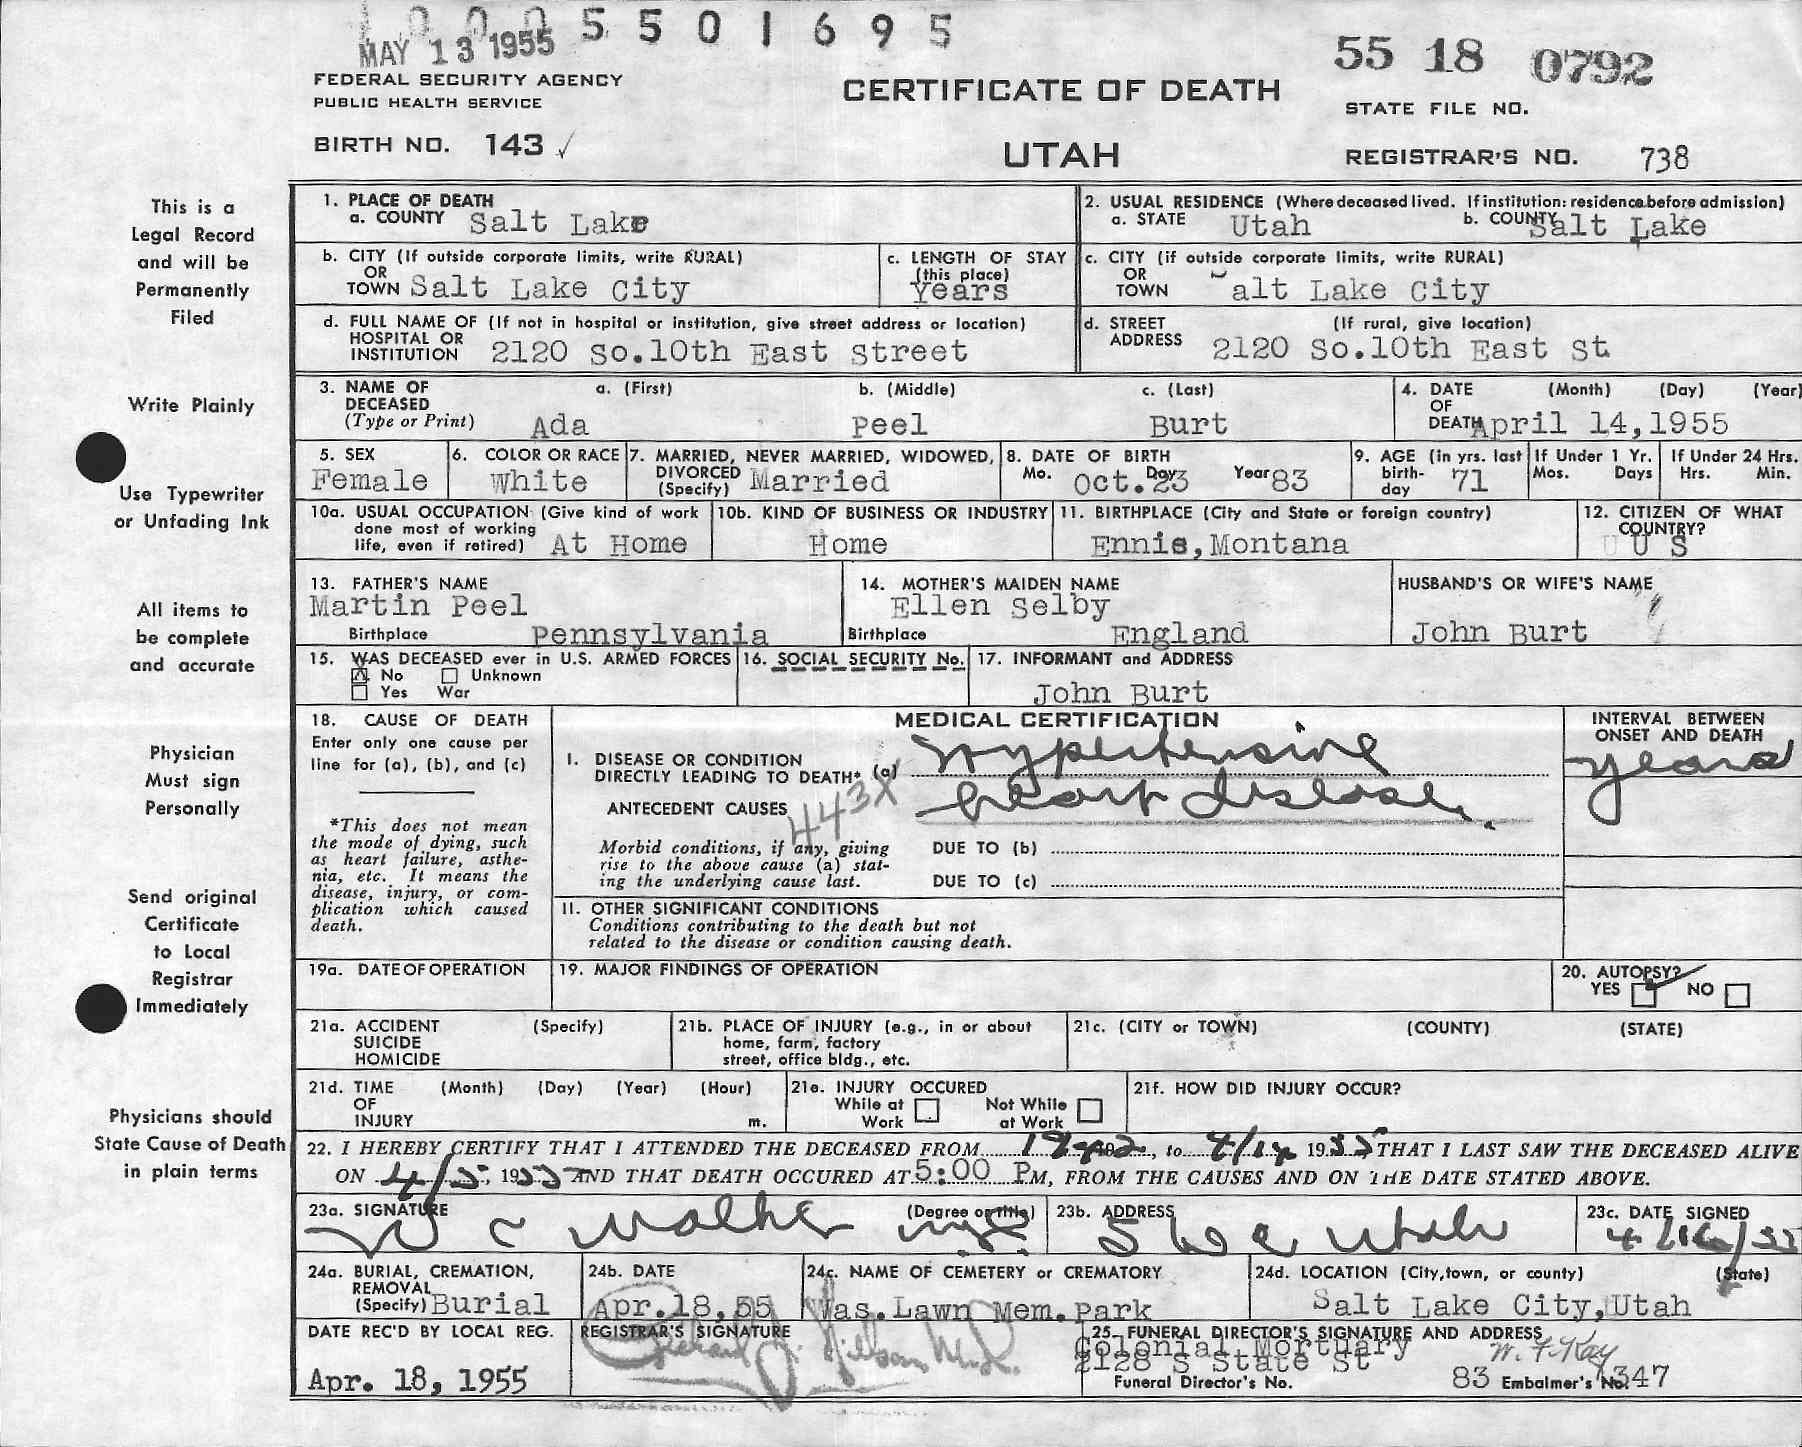 1 0 0 0 5 5 0 1 6 9 5
MAY 13 1955
55 18 0792
FEDERAL SECURITY AGENCY
PUBLIC HEALTH SERVICE
CERTIFICATE OF DEATH
STATE FILE NO.
BIRTH NO. 143 ✓
UTAH
REGISTRAR'S NO. 738
This is a
Legal Record
and will be
Permanently
Filed
Write Plainly
Use Typewriter
or Unfading Ink
All items to
be complete
and accurate
Physician
Must sign
Personally
Send original
Certificate
to Local
Registrar
Immediately
Physicians should
State Cause of Death
in plain terms
1. PLACE OF DEATH
a. COUNTY Salt Lake
2. USUAL RESIDENCE (Where deceased lived. If institution: residence before admission)
a. STATE Utah b. COUNTY Salt Lake
b. CITY (If outside corporate limits, write RURAL)
OR
TOWN Salt Lake City
c. LENGTH OF STAY
(this place)
Years
c. CITY (if outside corporate limits, write RURAL)
OR
TOWN alt Lake City
d. FULL NAME OF (If not in hospital or institution, give street address or location)
HOSPITAL OR
INSTITUTION 2120 So.10th East Street
d. STREET (If rural, give location)
ADDRESS 2120 So.10th East St
3. NAME OF a. (First) b. (Middle) c. (Last)
DECEASED
(Type or Print) Ada Peel Burt
4. DATE (Month) (Day) (Year)
OF
DEATH April 14,1955
5. SEX
Female
6. COLOR OR RACE
White
7. MARRIED, NEVER MARRIED, WIDOWED,
DIVORCED
(Specify) Married
8. DATE OF BIRTH
Mo. Oct. Day 23 Year 83
9. AGE (in yrs. last
birth-
day 71
If Under 1 Yr.
Mos. Days
If Under 24 Hrs.
Hrs. Min.
10a. USUAL OCCUPATION (Give kind of work
done most of working
life, even if retired) At Home
10b. KIND OF BUSINESS OR INDUSTRY
Home
11. BIRTHPLACE (City and State or foreign country)
Ennis,Montana
12. CITIZEN OF WHAT
COUNTRY?
U S
13. FATHER'S NAME
Martin Peel
Birthplace Pennsylvania
14. MOTHER'S MAIDEN NAME
Ellen Selby
Birthplace England
HUSBAND'S OR WIFE'S NAME
John Burt
15. WAS DECEASED ever in U.S. ARMED FORCES
No Unknown
Yes War
16. SOCIAL SECURITY No.
17. INFORMANT and ADDRESS
John Burt
18. CAUSE OF DEATH
Enter only one cause per
line for (a), (b), and (c)
*This does not mean
the mode of dying, such
as heart failure, asthe-
nia, etc. It means the
disease, injury, or com-
plication which caused
death.
MEDICAL CERTIFICATION
I. DISEASE OR CONDITION
DIRECTLY LEADING TO DEATH* (a) Hypertensive
ANTECEDENT CAUSES heart disease.
443X
Morbid conditions, if any, giving
rise to the above cause (a) stat-
ing the underlying cause last.
DUE TO (b)
DUE TO (c)
II. OTHER SIGNIFICANT CONDITIONS
Conditions contributing to the death but not
related to the disease or condition causing death.
INTERVAL BETWEEN
ONSET AND DEATH
years
19a. DATE OF OPERATION
19. MAJOR FINDINGS OF OPERATION
20. AUTOPSY?
YES NO
21a. ACCIDENT (Specify)
SUICIDE
HOMICIDE
21b. PLACE OF INJURY (e.g., in or about
home, farm, factory
street, office bldg., etc.
21c. (CITY or TOWN) (COUNTY) (STATE)
21d. TIME (Month) (Day) (Year) (Hour)
OF
INJURY m.
21e. INJURY OCCURED
While at Not While
Work at Work
21f. HOW DID INJURY OCCUR?
22. I HEREBY CERTIFY THAT I ATTENDED THE DECEASED FROM to 1955 THAT I LAST SAW THE DECEASED ALIVE
ON 4/5, 1955 AND THAT DEATH OCCURED AT 5:00 PM, FROM THE CAUSES AND ON THE DATE STATED ABOVE.
23a. SIGNATURE (Degree or title)
W C Walker
23b. ADDRESS
S L C Utah
23c. DATE SIGNED
4/16/55
24a. BURIAL, CREMATION,
REMOVAL
(Specify) Burial
24b. DATE
Apr.18,55
24c. NAME OF CEMETERY or CREMATORY
Was.Lawn Mem.Park
24d. LOCATION (City,town, or county) (State)
Salt Lake City,Utah
DATE REC'D BY LOCAL REG.
Apr. 18, 1955
REGISTRAR'S SIGNATURE
25. FUNERAL DIRECTOR'S SIGNATURE AND ADDRESS
Colonial Mortuary
2128 S State St
W. F. Kay
Funeral Director's No. 83 Embalmer's No. 347